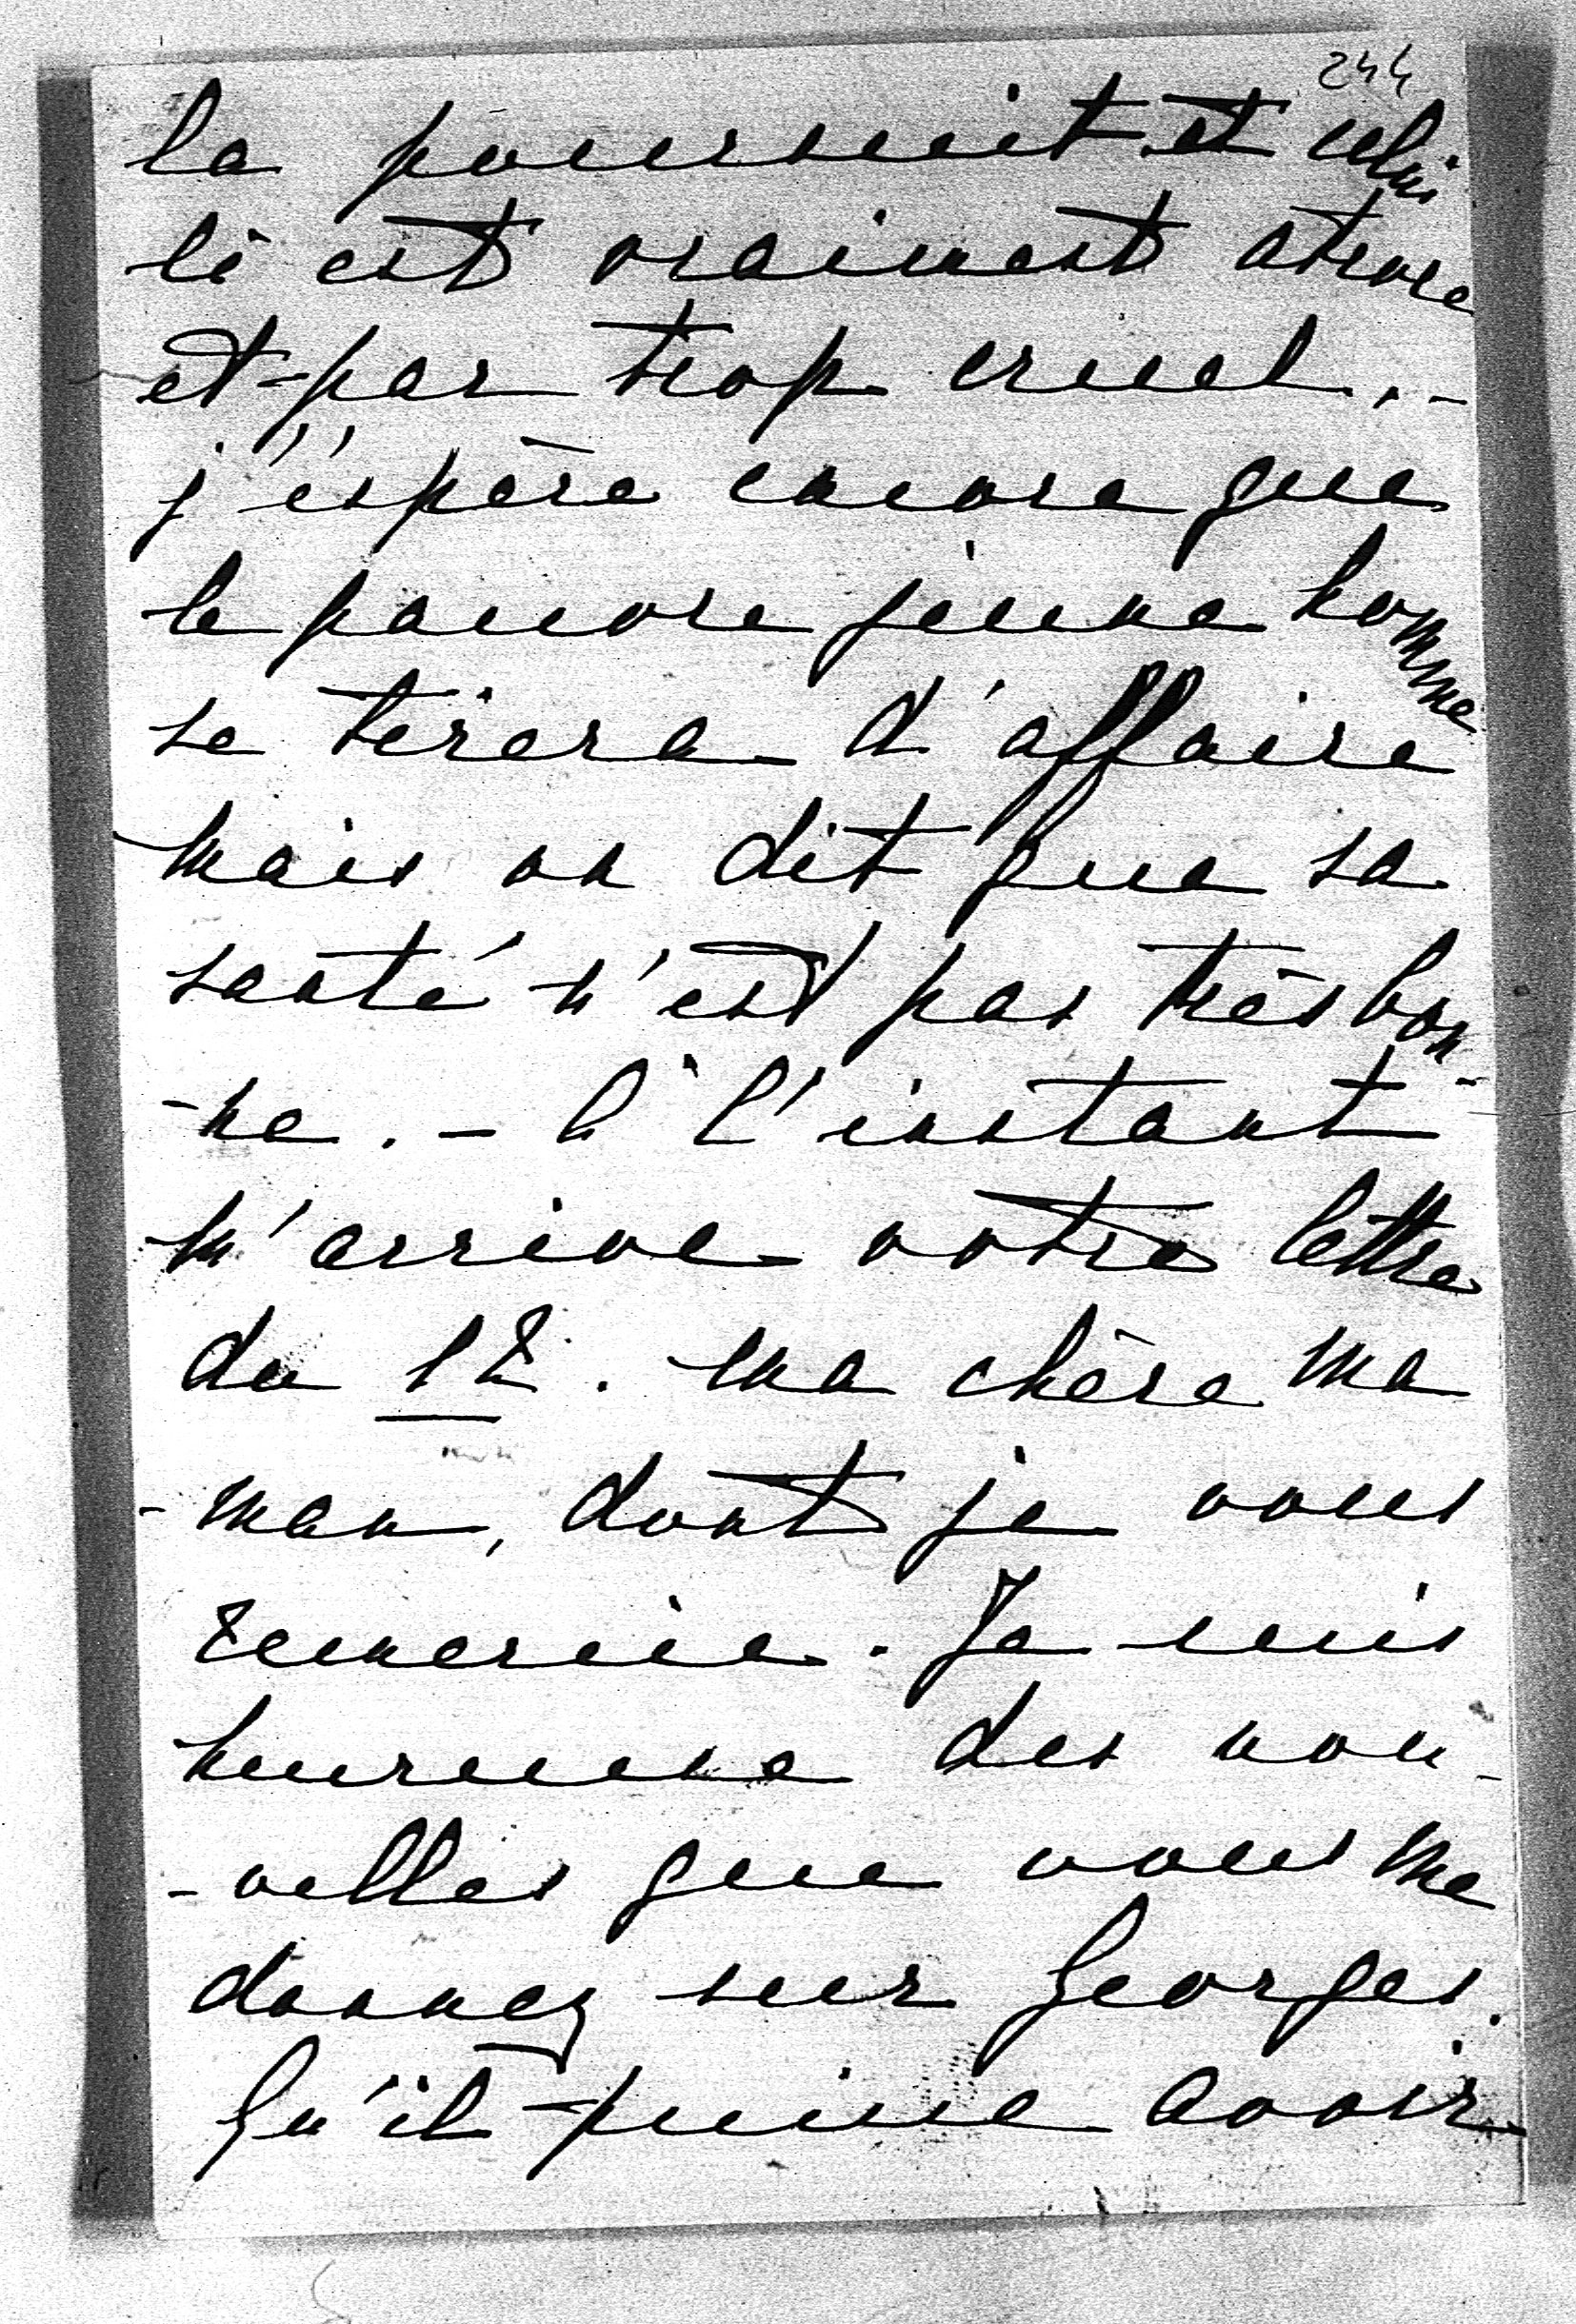 244
la poursuit et celui
là est vraiment atroce
et par trop cruel..-
j'espère encore que
le pauvre jeune homme
se tirera d'affaire
mais on dit que sa
santé n'est pas très bon-
-ne. - À l'instant
m'arrive votre lettre
du 12. ma chère ma
-man, dont je vous
remercie. Je suis
heureuse des nou-
-velles que vous me
donnez sur Georges.
Qu'il puisse avoir